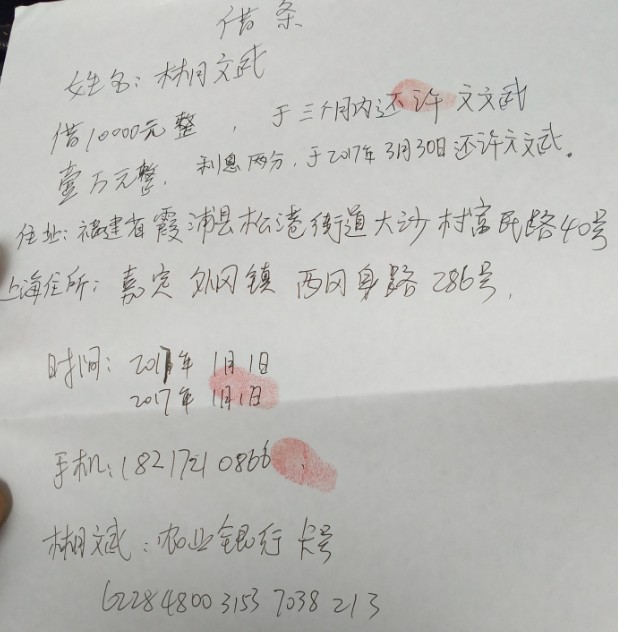 借条
姓名: 林月文武
借10000元整 , 于三个月内还许文武
壹万元整. 利息两分, 于2017年3月30日还许文武。
住址: 福建省霞浦县松港街道大沙村富民路40号
上海住所: 嘉定外冈镇西冈身路286号.
时间: 2017年1月1日
2017年1月1日
手机: 0866
文斌: 农业银行卡号
6228 4800 3153 7038 213